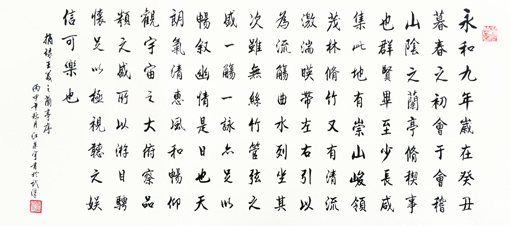 永和九年歲在癸丑
暮春之初會于會稽
山陰之蘭亭脩稧事
也群賢畢至少長咸
集此地有崇山峻領
茂林脩竹又有清流
激湍暎帶左右引以
為流觴曲水列坐其
次雖無絲竹管弦之
盛一觴一詠亦足以
暢敘幽情是日也天
朗氣清惠風和暢仰
觀宇宙之大俯察品
類之盛所以游目騁
懷足以極視聽之娛
信可樂也
摘錄王羲之蘭亭序
丙申年秋月